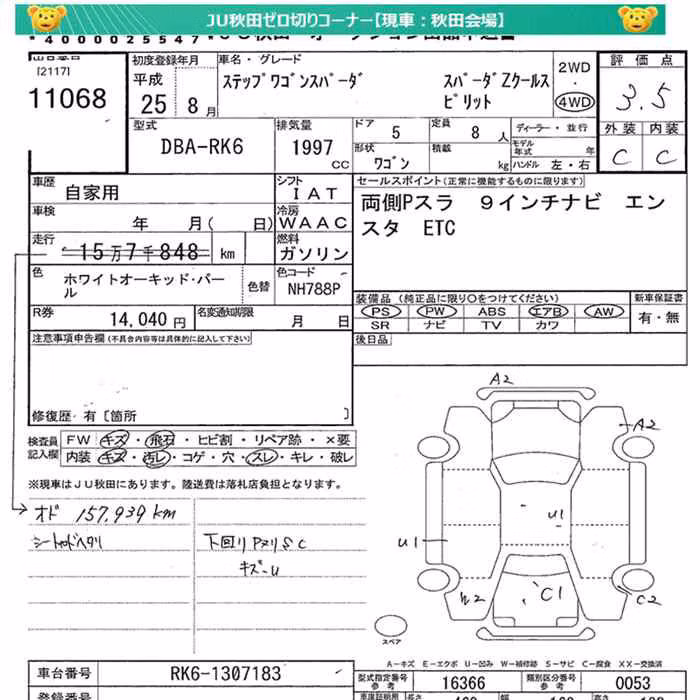 JU秋田ゼロ切りコーナー【現車：秋田会場】
*4000025547*
[2117]
11068
初度登録年月
平成
25 8月
車名・グレード
ステップワゴンスパーダ スパーダZクールス
ピリット
2WD
・
4WD
評価点
3.5
外装 内装
C C
型式
DBA-RK6
排気量
1997
CC
ドア 5
定員 8 人
形状
ワゴン
積載 kg
ディーラー・並行
モデル年式 年
ハンドル 左・右
車歴
自家用
シフト
IAT
車検
年 月( 日)
冷房
WAAC
走行
15万7千848 km
燃料
ガソリン
色
ホワイトオーキッド・パー
ル
色替
色コード
NH788P
R券
14,040 円
名変通知期限
月 日
セールスポイント(正常に機能するものに限ります)
両側Pスラ 9インチナビ エン
スタ ETC
装備品 (純正品に限り○をつけてください)
PS PW ABS エアB AW
SR ナビ TV カワ
新車保証書
有・無
後日品
注意事項申告欄(不具合内容等は具体的に記入して下さい)
修復歴・有〔箇所 〕
検査員
記入欄
FW キズ・飛石・ヒビ割・リペア跡・×要
内装 キズ・汚レ・コゲ・穴・スレ・キレ・破レ
※現車はJU秋田にあります。陸送費は落札店負担となります。
オド 157,939km
シートカドヘタリ
下回りPヌリSC
キズ〜U
A2
A2
U1
U1
W2
C1
C2
スペア
A-キズ E-エクボ U-凹み W-補修跡 S-サビ C-腐食 XX-交換済
車台番号
RK6-1307183
型式指定番号
参考
16366
類別区分番号
参考
0053
登録番号